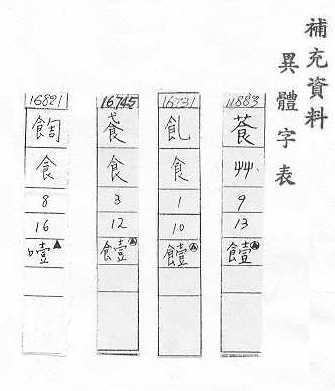 補充資料
異體字表
11883
艸
9
13
饐
16731
食
1
10
饐
16745
食
3
12
饐
16821
食
8
16
噎